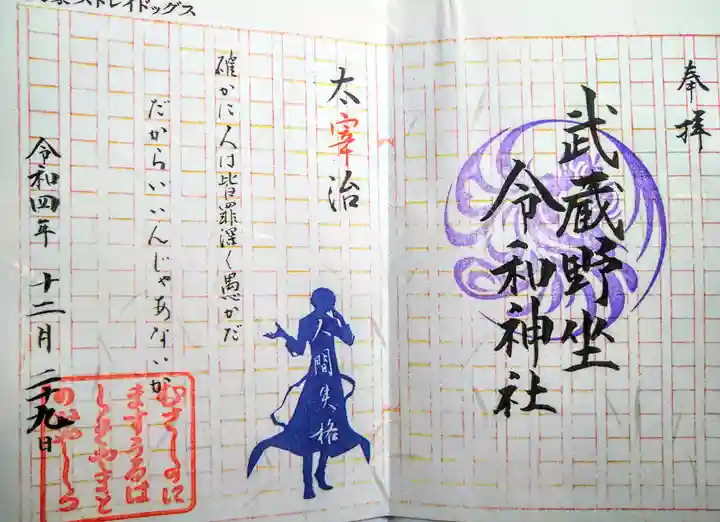 奉拝
武蔵野坐
令和神社
ストレイドッグス
太宰治
確かに人は皆罪深く愚かだ
だからいいんじゃあないか
人間失格
令和四年 十二月 二十九日
むさしのに
ますうるは
しきやまと
のみやしろ